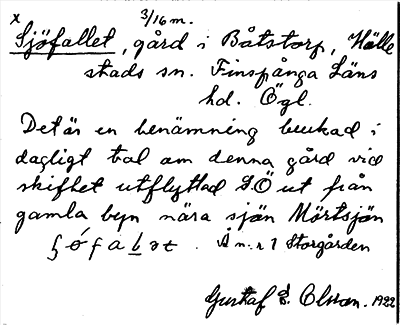 x 3/16 m.
Sjöfallet, gård i Båtstorp, Hälle
stads sn. Finspånga Läns
hd. Ögl.
Det är en benämning brukad i
dagligt tal om denna gård vid
skiftet utflyttad S.Ö ut från
gamla byn nära sjön Mörtsjön
Än:r 1 Storgården
Gustaf E. Olsson. 1922